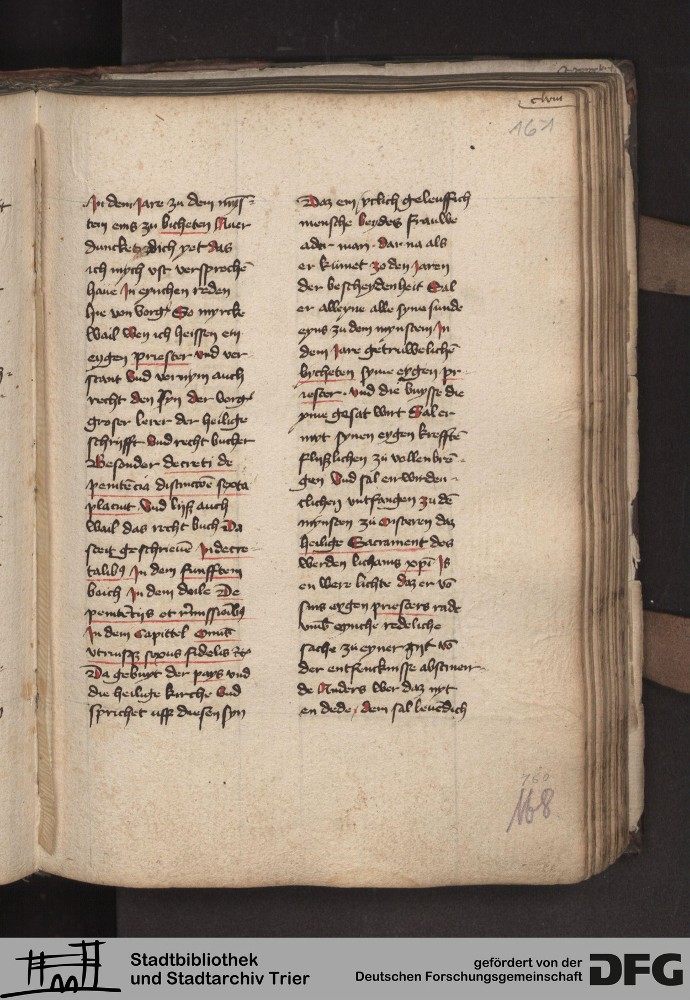 clviii
161
In dem Jare zu dem myns-
ten eins zu bicheten Auer
duncket dich yet das
ich mych vst versprochē
haue In eynchen reden
hie von vorgͭ So myrcke
wail wen ich heissen ein
eygen priester vnd ver
stant vnd vernym auch
recht den syn der vorgͭ
groser lerer der heilige
schryfft vnd recht bucher
Besonder decreti de
penitēcia distinctōe sexta
placuit vnd lyß auch
wail das recht buch Da
steit geschrieuē In decre-
talibꝰ In dem funfften
boich In dem deile De
penitētijs et remissioībꝰ
In dem Capittel Omīs
vtriusqꝫ sexus fidelis ⁊c
Da gebuyt der pays vnd
die heilige kirche vnd
sprichet uff diesen syn
Daz ein yclich geleuffich
mensche beydes frauwe
ader man dar na als
er kūmet zo den Jaren
der bescheydenheit Sal
er alleyne alle syne sunde
eyns zu dem mynsten In
dem Jare getruwelichē
bychten syme eygen pr-
iester vnd die buysse die
yme gesat wirt Sal er
myt synen eygen krefftē
flyßlichen zu vollenbrē-
gen Vnd sal erwirden-
tlichen vntfangen zu dē
mynsten zu Oisteren daz
heilige Sacrament des
werden lichams xpī Is
en were lichte daz er vō
sins eygen priesters rade
vmb eyniche redeliche
sache zu eyner zyt vō
der entfencknisse abstinen-
de Anders wer daz nyt
en dede dem sal leuēdich
160
168
Stadtbibliothek
und Stadtarchiv Trier
gefördert von der
Deutschen Forschungsgemeinschaft
DFG